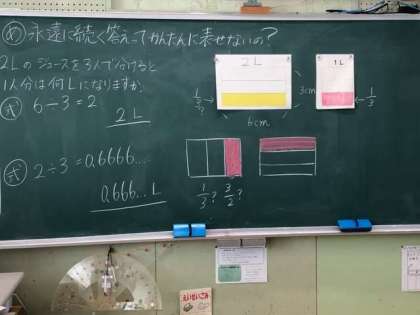 め 永遠に続く答えってかんたんに表せないの?
2Lのジュースを3人で分けると
1人分は何Lになりますか。
式 6÷3=2
2L
式 2÷3=0.6666...
0.666...L
2L
1/3?
3cm
6cm
1L
1/3
1/3? 3/2?